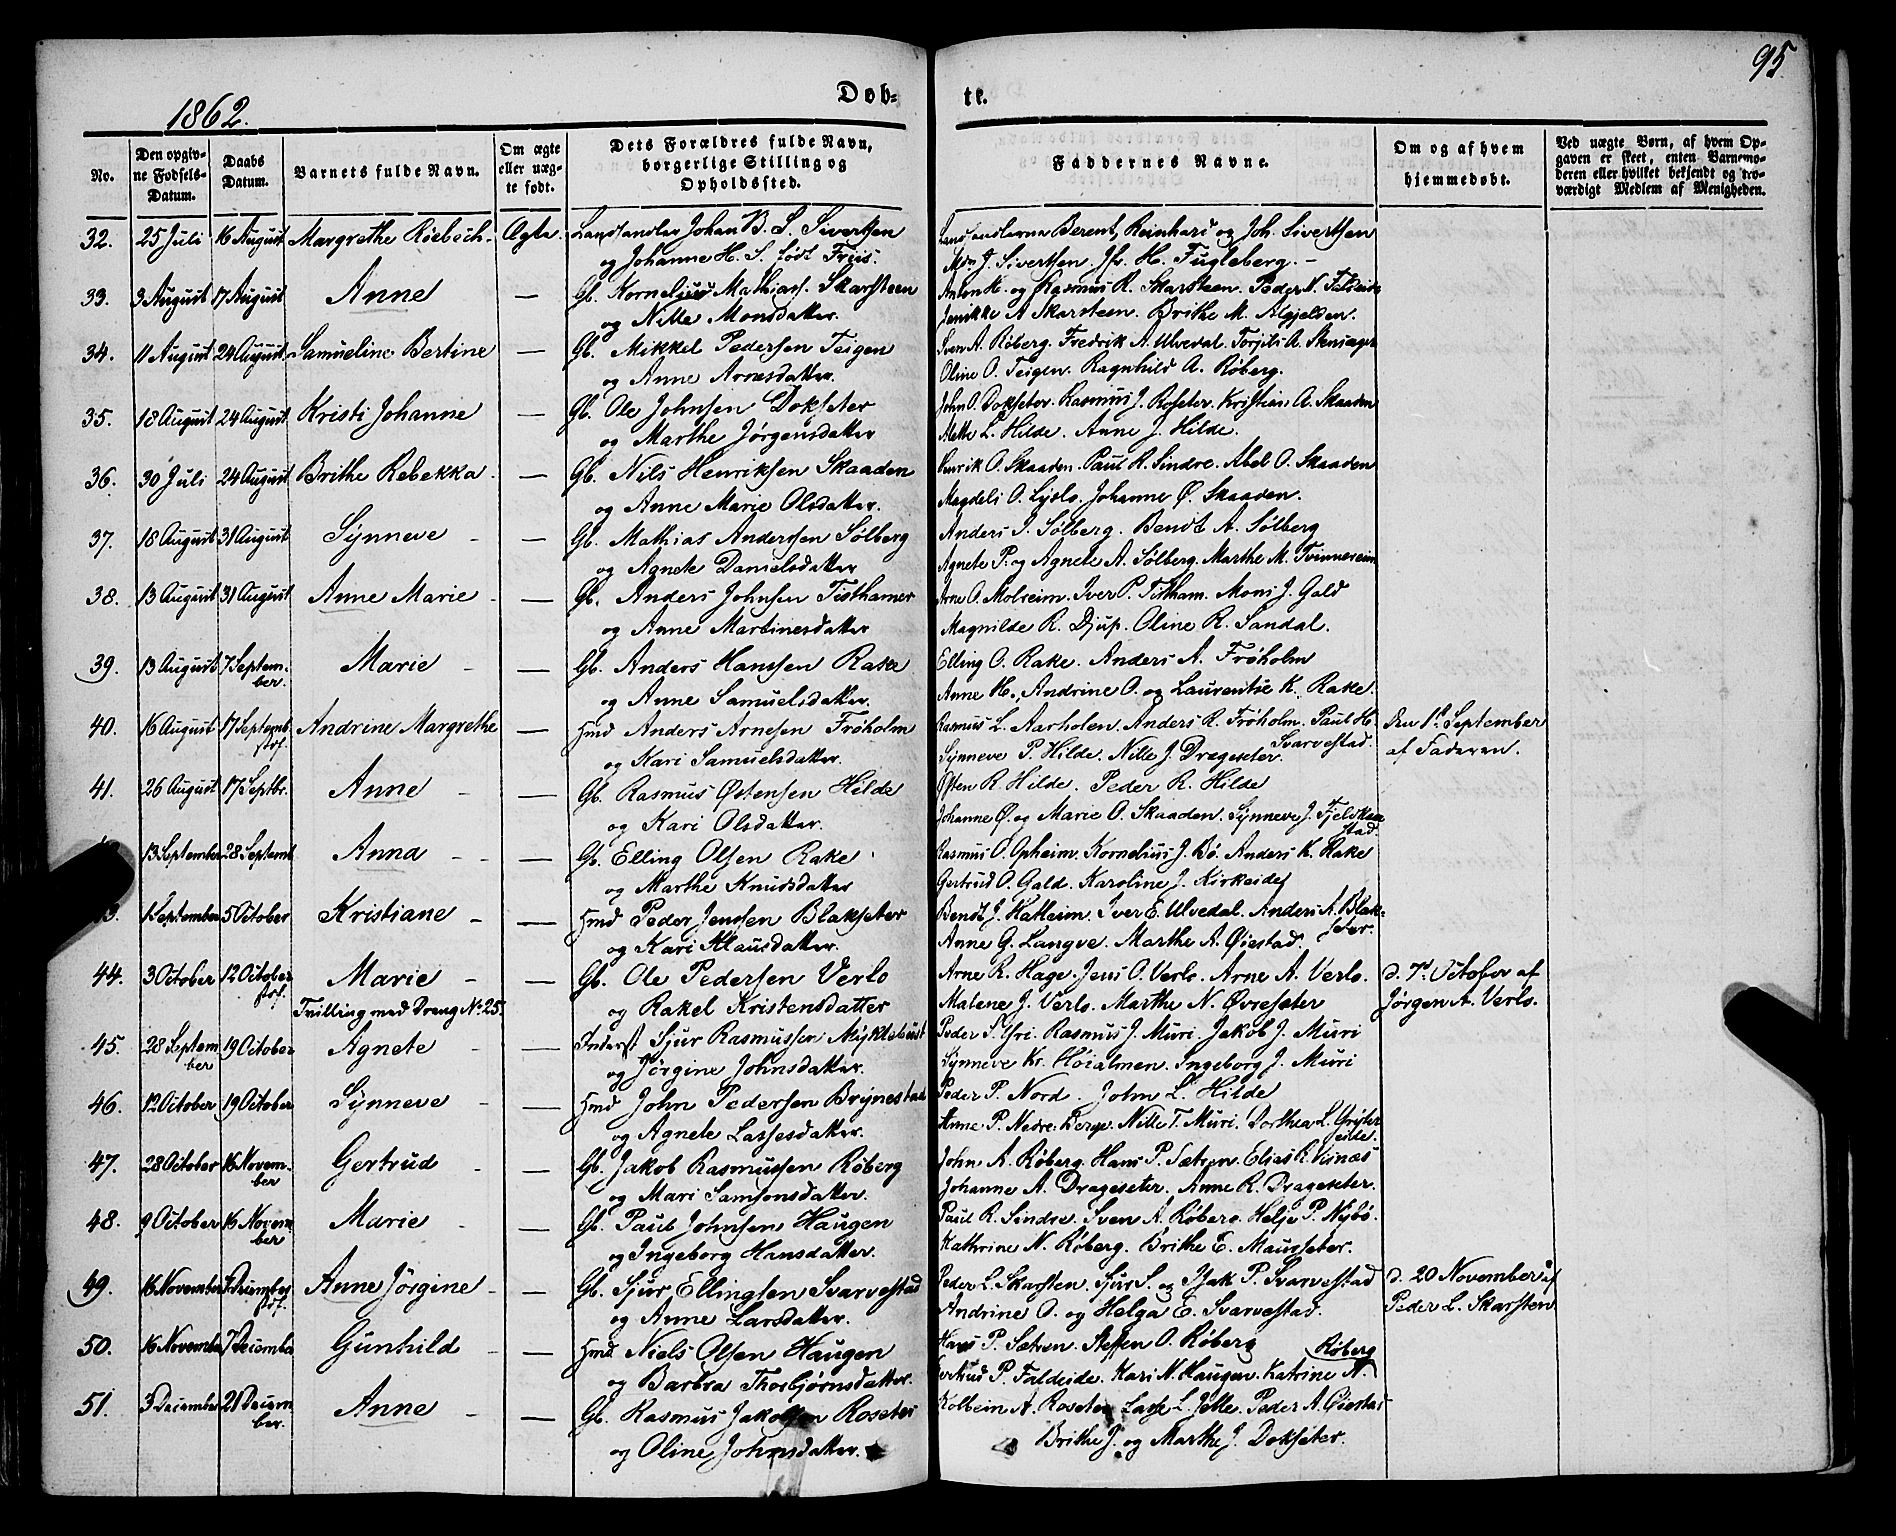 95.
1862.
Døb-
te.
No.
Den opgiv-
ne Fødsels-
Datum.
Daabs
Datum.
Barnets fulde Navn.
Om ægte
eller uæg-
te født.
Dets Forældres fulde Navn,
borgerlige Stilling og
Opholdssted.
Faddernes Navne.
Om og af hvem
hjemmedøbt.
Ved uægte Børn, af hvem Op-
gaven er skeet, enten Barnemo-
deren eller hvilket bekjendt og tro-
værdigt Medlem af Menigheden.
32. 25 Juli 16 August Margrethe Roebech. Ægte. Landhandler Johan B. S. Sivertsen
og Johanne H. S. født Friis.
Landhandlerne Berent, Reinhard og Joh. Sivertsen
J. Sivertsen. Jfr. H. Fugleberg. –
33. 3 August 17 August Anne — Gb. Kornelius Mathiass. Skarsteen
og Nille Monsdatter.
Anton K. og Rasmus R. Skarsteen. Peder N.
Jenikke A Skarsteen. Brithe M. Algjelden.
34. 11 August 24 August. Samueline Bertine — Gb. Mikkel Pedersen Teigen
og Anne Arnesdatter.
Sven A. Røberg. Fredrik A. Ulvedal. Torjils A.
Oline O. Teigen. Ragnhild A. Røberg.
35. 18 August 24 August Kristi Johanne — Gb. Ole Johnsen Dokseter
og Marthe Jørgensdatter
John O. Dokseter. Rasmus J. Roseter. Kristian A. Skaaden
Mette L. Hilde. Anne J. Hilde.
36. 30 Juli 24 August Brithe Rebekka. — Gb. Nils Henriksen Skaaden
og Anne Marie Olsdatter.
Henrik O. Skaaden. Paul R. Sindre. Abel O. Skaaden
Magdeli O. Lyslo. Johanne Ø. Skaaden.
37. 18 August 31 August Synneve - — Gb. Mathias Andersen Sølberg
og Agnete Danielsdatter
Anders J. Sølberg. Bendt A. Sølberg
Agnete P. og Agnete A. Sølberg. Marthe M. Tvinnereim
38. 13 August 31 August Anne Marie - — Gb. Anders Johnsen Tisthamer
og Anne Martinesdatter
Arne O. Molreim. Iver P. Tistham. Mons J. Gald
Magnilde R. Djup. Oline R. Sandal.
39. 13 August 7 Septem-
ber. Marie - — Gb. Anders Hanssen Rake
og Anne Samuelsdatter.
Elling O. Rake. Anders A. Frøholm
Anne H., Andrine O. og Laurentse K. Rake.
40. 16 August 17 Septemb. Andrine Margrethe — Hmd Anders Arnesen Frøholm
og Kari Samuelsdatter.
Rasmus L. Aarholen. Anders R. Frøholm. Paul H.
Svarvestad.
Synneve P. Hilde. Nille J. Drageseter.
den 1ste September
af Faderen.
41. 26 August 17 Septbr. Anne - — Gb. Rasmus Østensen Hilde
og Kari Olsdatter.
Østen R Hilde. Peder R. Hilde
Johanne Ø. og Marie O. Skaaden. Synneve J.
stad.
13 September 28 Septemb Anna - - — Gb. Elling Olsen Rake
og Marthe Knudsdatter
Rasmus O. Opheim. Kornelius J. Bø. Anders K. Rake
Gertrud O. Gald. Karoline J. Kirkeide
1 September 5 October Kristiane - — Hmd Peder Jenssen Blakseter
og Kari Klausdatter.
Bendt J. Hatleim. Iver E. Ulvedal. Anders A. Blak-
seter.
Anne G. Langve. Marthe A. Øiestad.
44. 3 October 12 October Marie - — Gb. Ole Pedersen Verlo
Tvilling med Dreng No. 25.
og Rakel Kristensdatter
Arne R. Hage. Jens O. Verlo. Arne A. Verlo.
Malene J. Verlo. Marthe N. Øvreseter
d. 7de October af
Jørgen A. Verlo.
45. 28 Septem
ber 19 October Agnete - — Inderst Sjur Rasmussen Myklebust
og Jørgine Johnsdatter.
Peder S. Fri. Rasmus J. Muri. Jakob J. Muri
Synneve Kr. Høialmen. Ingeborg J. Muri
46. 12 October 19 October Synneve - — Hmd John Pedersen Brynestad
og Agnete Lassesdatter.
Peder P. Nord. John L. Hilde
Anne P. Nedre-Berge. Nille T. Muri. Dorthea L.
eide.
47. 28 October 16 Novem-
ber Gertrud - — Gb. Jakob Rasmussen Røberg
og Mari Samsonsdatter.
John A. Røberg. Hans P. Sætren. Elias R. Visnæs
Johanne A. Drageseter. Anne R. Drageseter.
48. 9 October 16 Novem
ber Marie - — Gb. Paul Johnsen Haugen
og Ingeborg Hansdatter.
Paul R. Sindre. Sven A. Røberg. Helje P. Nybø.
Kathrine N. Røberg. Brithe E. Mausseter.
49. 16 November 7 December Anne Jørgine - — Gb. Sjur Ellingsen Svarvestad
og Anne Larsdatter.
Peder L. Skarsten. Sjur S. og Isak P. Svarvestad
Andrine O. og Helga E. Svarvestad.
d. 20 November af
Peder L. Skarsten
50. 16 Novemb 7 Decemb Gunhild - — Hmd Niels Olsen Haugen
og Barbra Thorbjørnsdatter.
Hans P. Sætren. Steffen O. Røberg
Røberg
Gertrud P. Faldeide. Kari N. Haugen. Katrine N.
51. 3 December 21 Decem
ber. Anne - — Gb. Rasmus Jakobsen Roseter
og Oline Johnsdatter.
Kolbein A. Roseter Lasse L. Jelle. Peder A. Øiestad
Brithe J. og Marthe J. Dokseter.